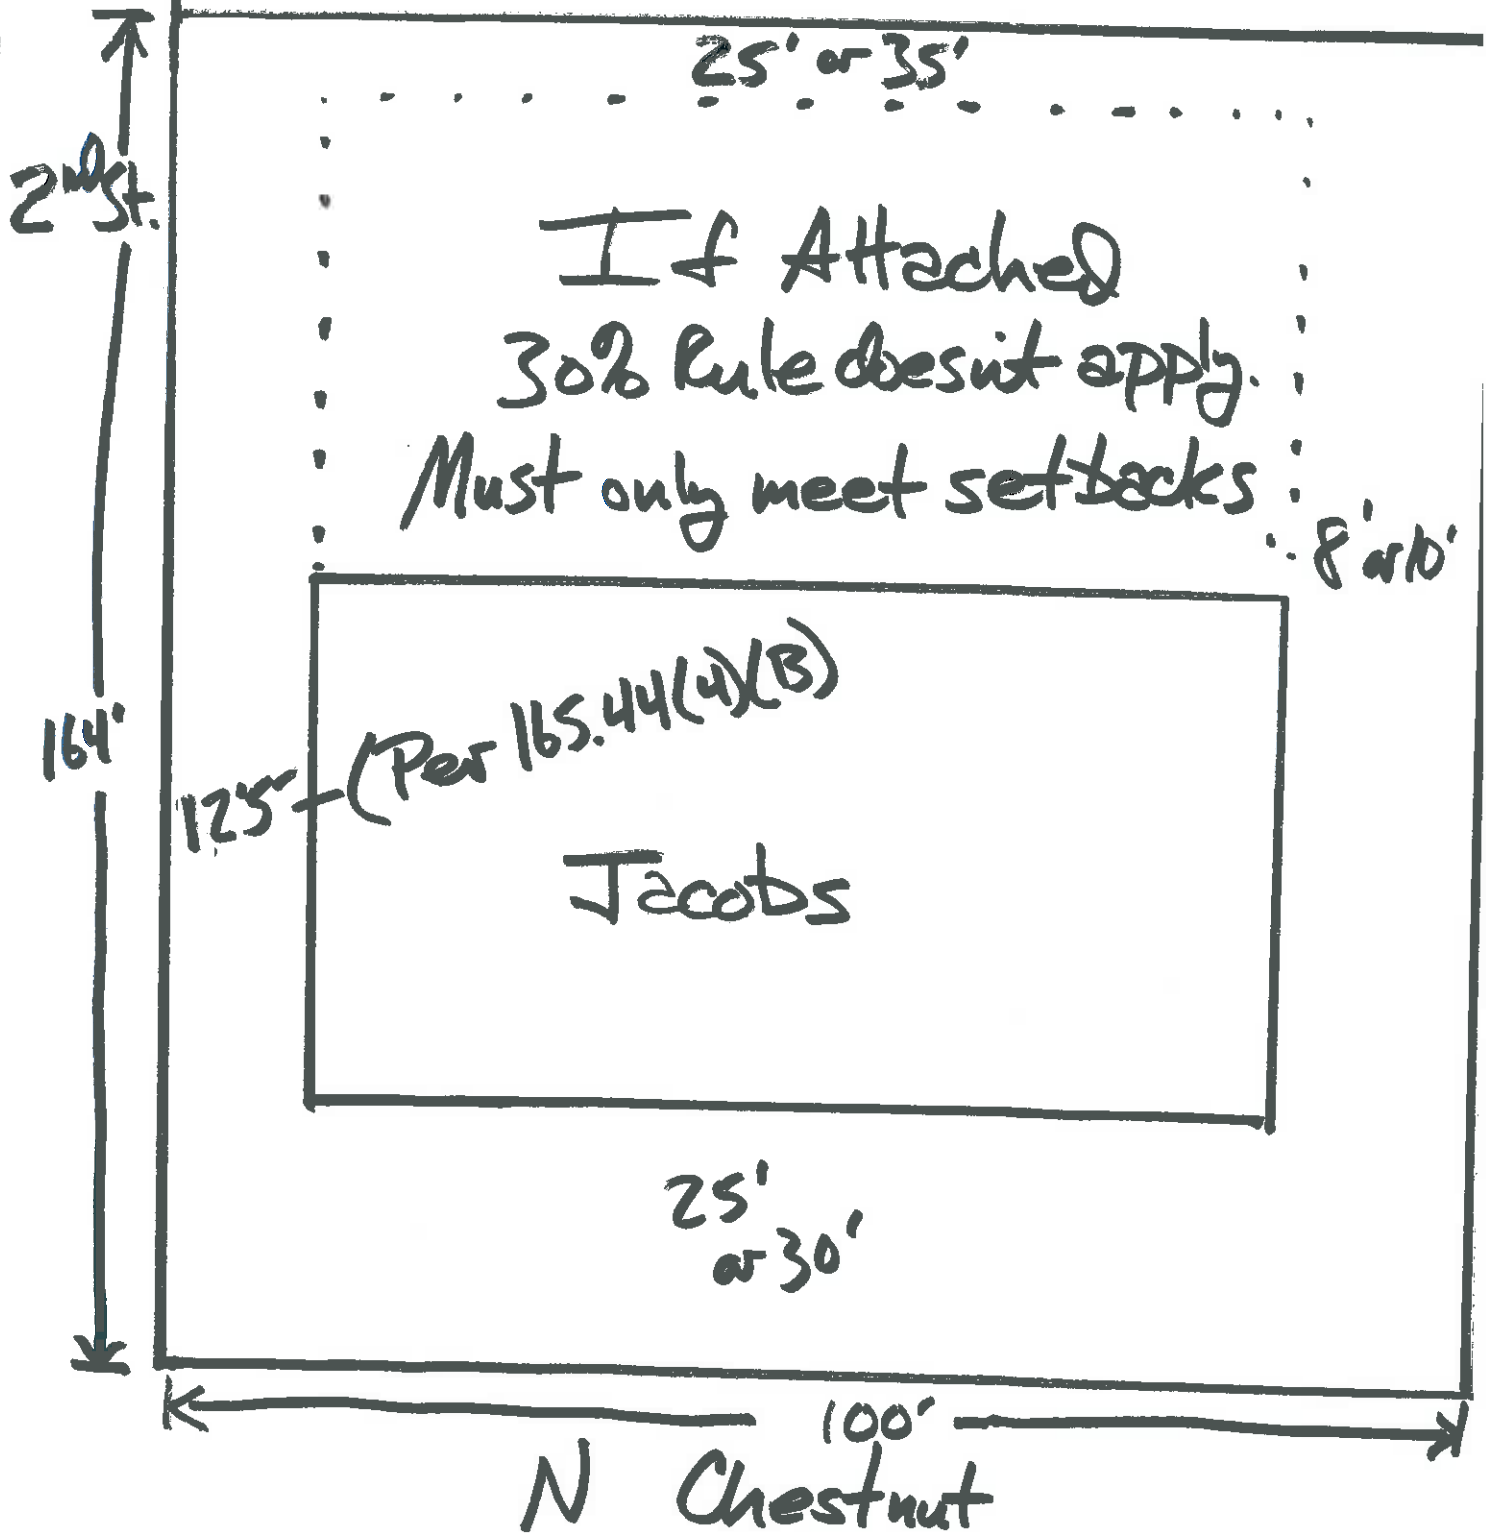 25' or 35'
2nd St.
If Attached
30% Rule doesn't apply.
Must only meet setbacks
8' or 10'
(Per 165.44(4)(B)
164'
Jacobs
25'
or 30'
100'
N Chestnut